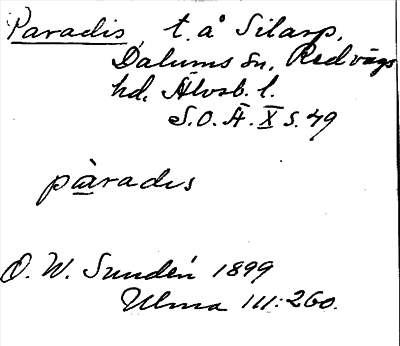 Paradis, t. å Silarp,
Dalums sn, Redvägs
hd, Älvsb. l.
S.O.Ä. X s. 49
pàradıs
O. W. Sundén 1899
Ulma 111:260.